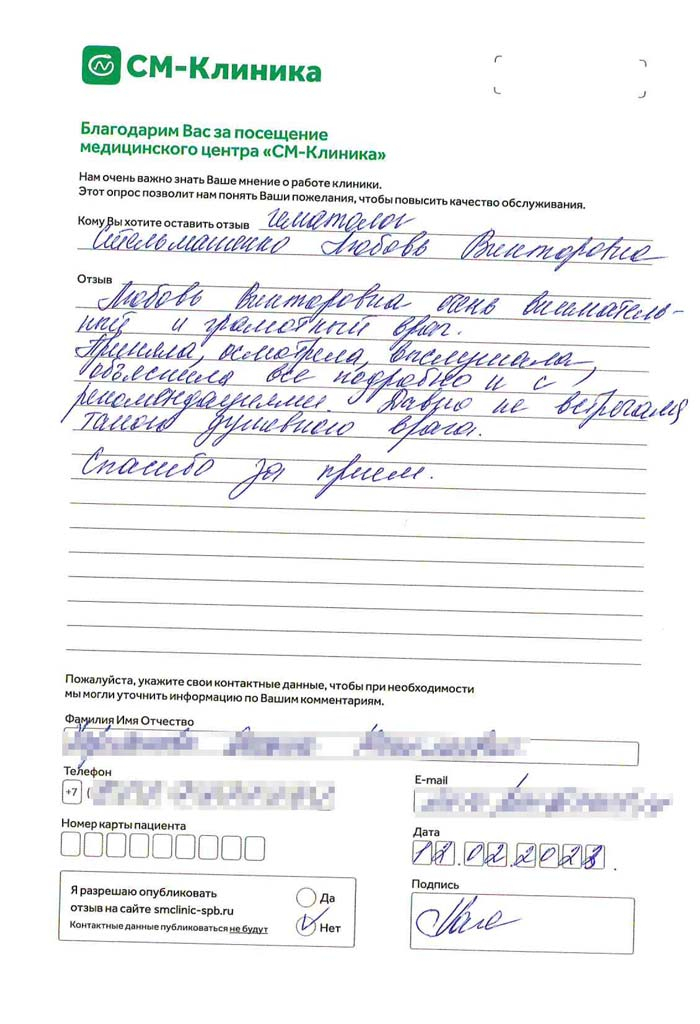 СМ-Клиника
Благодарим Вас за посещение
медицинского центра «СМ-Клиника»
Нам очень важно знать Ваше мнение о работе клиники.
Этот опрос позволит нам понять Ваши пожелания, чтобы повысить качество обслуживания.
Кому Вы хотите оставить отзыв гематолог
Стельмашенко Любовь Викторовна
Отзыв
Любовь Викторовна очень внематель-
ный и грамотный врач.
Приняла, осмотрела, выслушала,
объяснила все подробно и с
рекомендациями. Давно не встречала
такого душевного врача.
Спасибо за прием.
Пожалуйста, укажите свои контактные данные, чтобы при необходимости
мы могли уточнить информацию по Вашим комментариям.
Фамилия Имя Отчество
Телефон
E-mail
+7 (
Номер карты пациента
Дата
12.02.2023.
Я разрешаю опубликовать
отзыв на сайте smclinic-spb.ru
Контактные данные публиковаться не будут
Да
Нет
Подпись